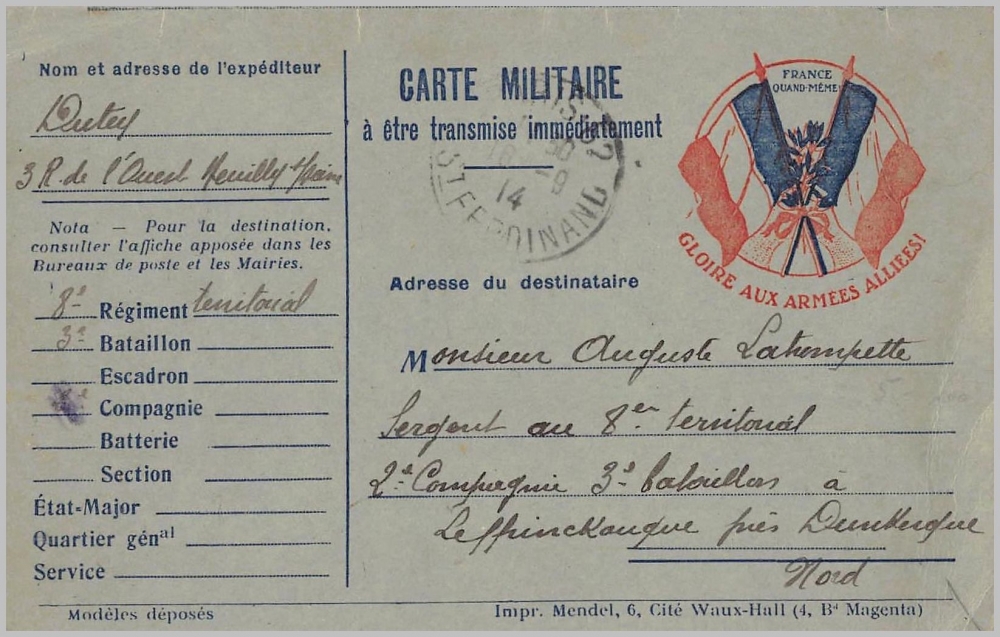 Nom et adresse de l'expéditeur
Dutey
3 R. de l'Ouest Neuilly s/Seine
Nota — Pour la destination,
consulter l'affiche apposée dans les
Bureaux de poste et les Mairies.
8e Régiment territorial
3e Bataillon
Escadron
Compagnie
Batterie
Section
État-Major
Quartier génal
Service
Modèles déposés
CARTE MILITAIRE
à être transmise immédiatement
14
ST FERDINAND
52
FRANCE
QUAND-MÊME!
GLOIRE AUX ARMÉES ALLIÉES!
Adresse du destinataire
Monsieur Auguste Latrompette
Sergent au 8er territorial
2e Compagnie 3e bataillon à
Leffrinckouque près Dunkerque
Nord
Impr. Mendel, 6, Cité Waux-Hall (4, Bd Magenta)